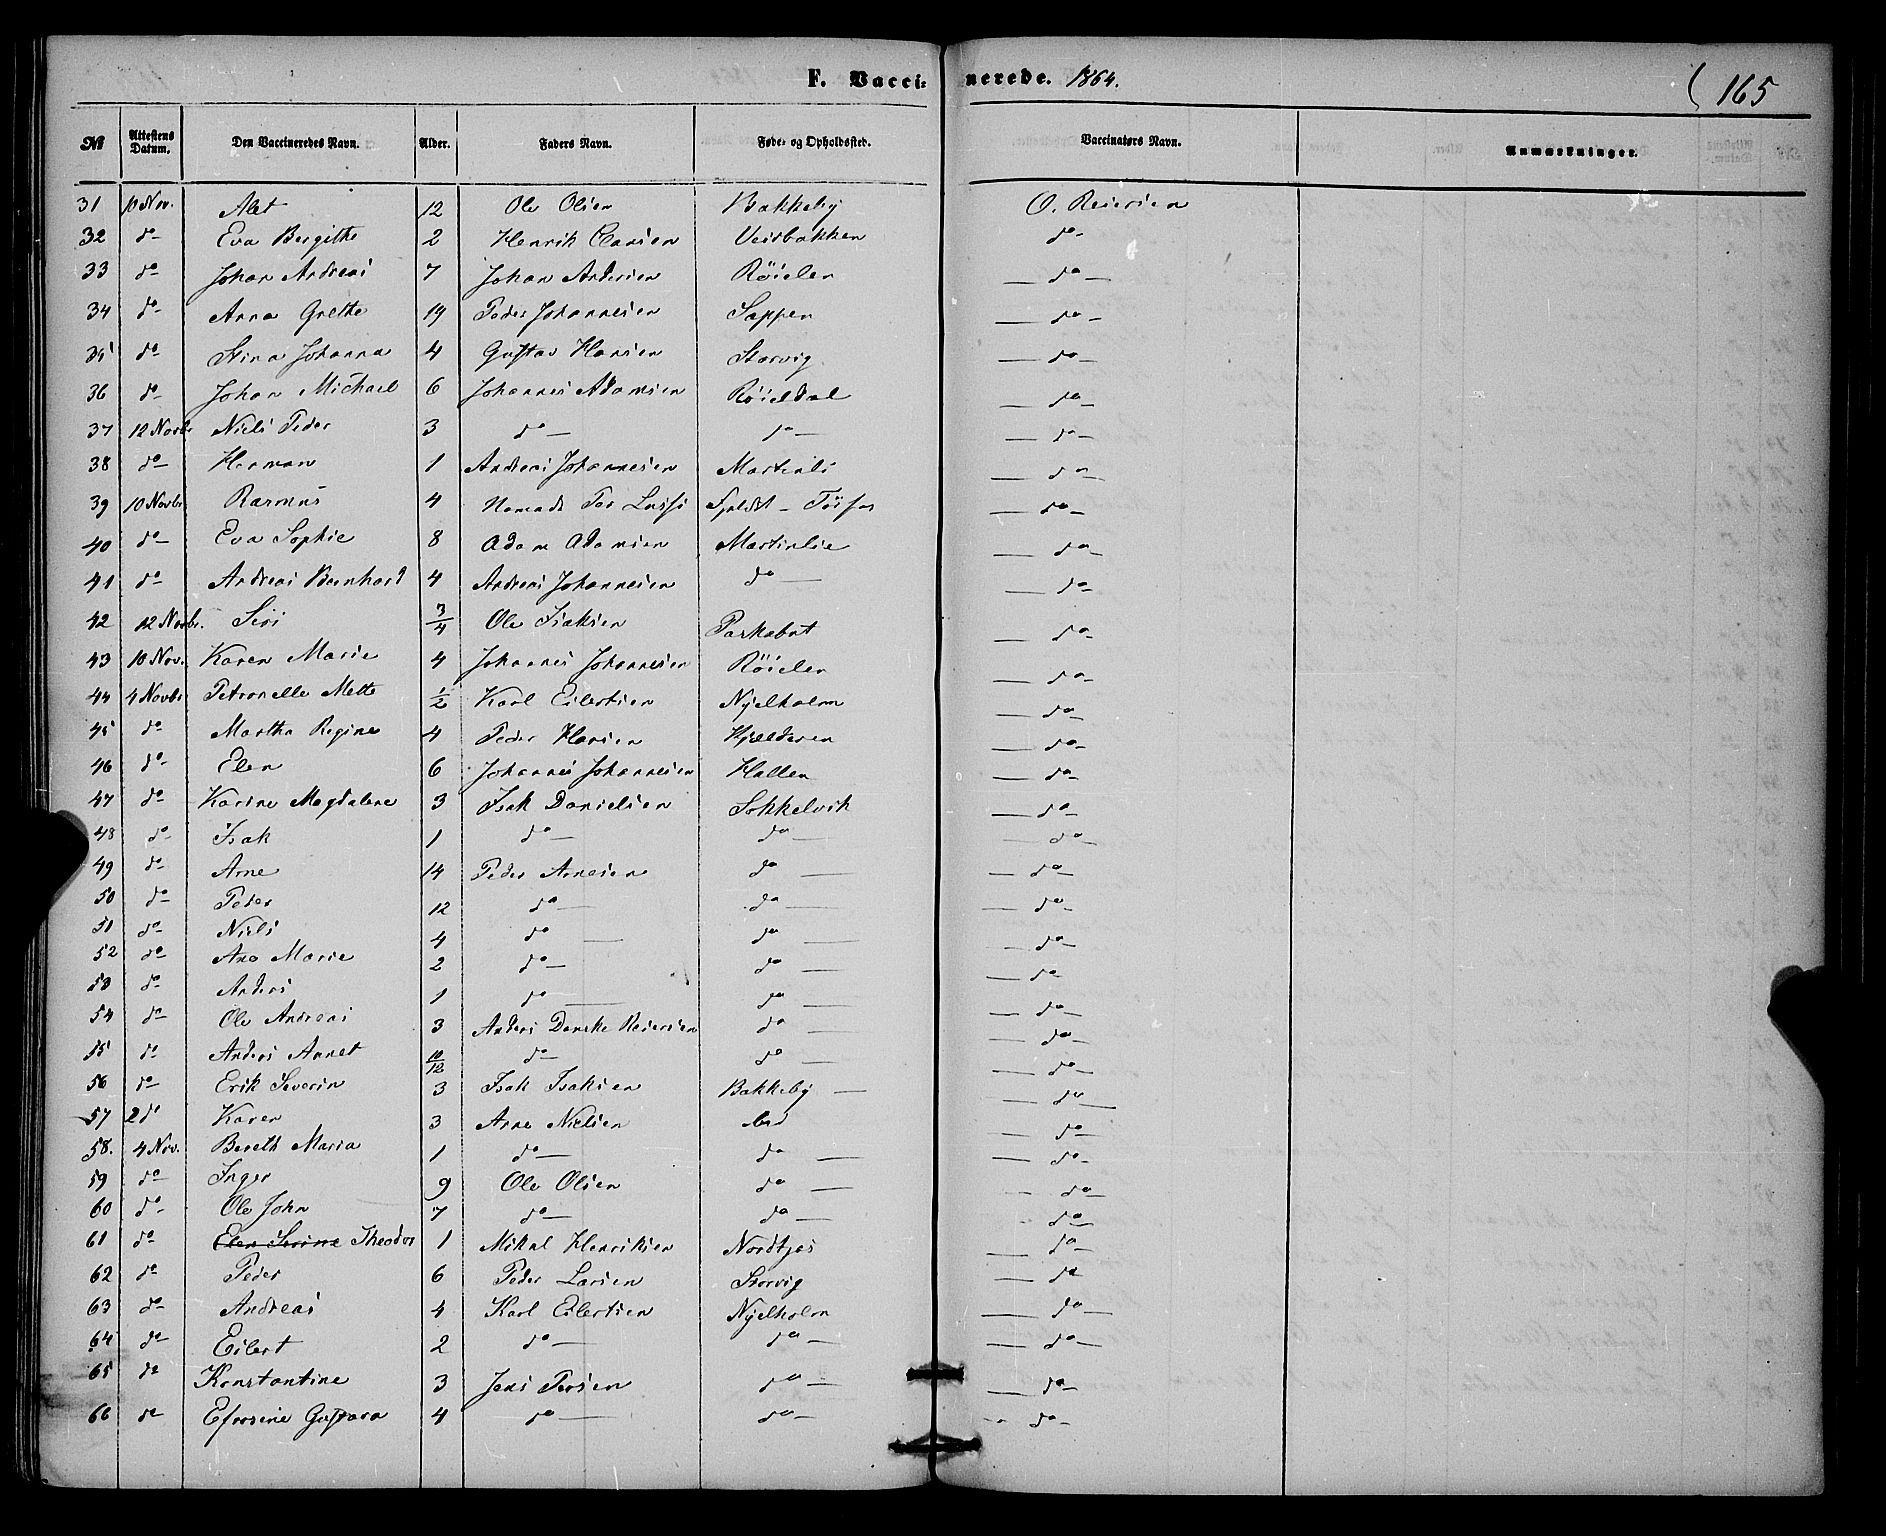 F. Vaccinerede. 1864. 165
№ Attestens Datum. Den Vaccineredes Navn. Alder. Faders Navn. Føde- og Opholdssted. Vaccinatørs Navn. Anmærkninger.
31 10 Nov. Alet 12 Ole Olsen Bakkeby O. Reiersen
32 do Eva Bergitha 2 Henrik Clausen do
33 do Johan Andreas 7 Johan Andersen Röielen do
34 do Anna Grethe 19 Peder Johannesen Sappen do
35 do Stina Johanna 4 Gustav Hansen Storvig do
36 do Johan Michael 6 Johannes Adamsen Röieldal do
37 12 Novbr Niels Peder 3 do do do
38 do Herman 1 Andreas Johannesen Martinli do
39 10 Novbr Rasmus 4 Nomade Per do
40 do Eva Sophie 8 Adam Adamsen Martinlie do
41 do Andreas Bernhard 4 Andreas Johannesen do do
42 12 Novbr. Siri 3/4 Ole Isaksen do
43 10 Nov. Karen Marie 4 Johannes Johannesen Röielen do
44 4 Novbr Petronelle Mette 1/2 Karl Eilertsen Nyelholm do
45 do Martha Regine 4 Peder Hansen do
46 do Elen 6 Johannes Johannesen Hallen do
47 do Karine Magdalene 3 Isak Danielsen Sokkelvik do
48 do Isak 1 do do do
49 do Arne 14 Peder Arnesen do do
50 do Peder 12 do do do
51 do Niels 4 do do do
52 do Ane Marie 2 do do do
53 do Anders 1 do do do
54 do Ole Andreas 3 Anders Danske Reiersen do do
55 do Anders Annet 10/12 do do do
56 do Erik Severin 3 Isak Isaksen Bakkeby do
57 2 do Karen 3 Arne Nielsen do
58. 4 Nov. Bereth Maria 1 do do do
59 do Inger 9 Ole Olsen do do
60 do Ole John 7 do do do
61 do Elen Serine Theodor 1 Mikal Henriksen do
62 do Peder 6 Peder Larsen Storvig do
63 do Andreas 4 Karl Eilertsen Nyelholm do
64 do Eilert 2 do do do
65 do Konstantine 3 Jens Persen do do
66 do Efrosine Gustava 4 do do do